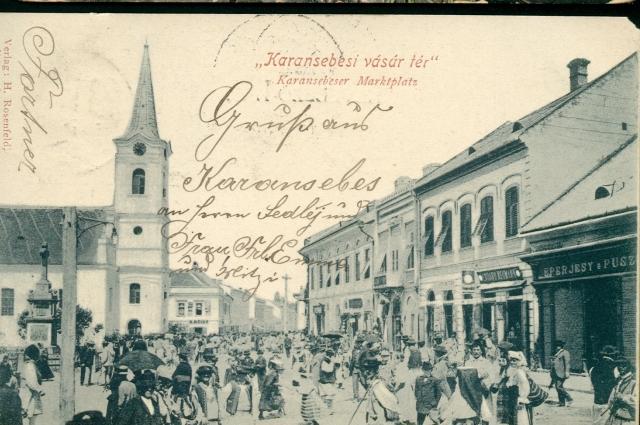 „Karansebesi vásár tér“
Karansebeser Marktplatz
Verlag: H. Rosenfeld,
Gruß aus
Karansebes
an Herrn Sedley und
Frau
und
EPERJESY & PUSZ